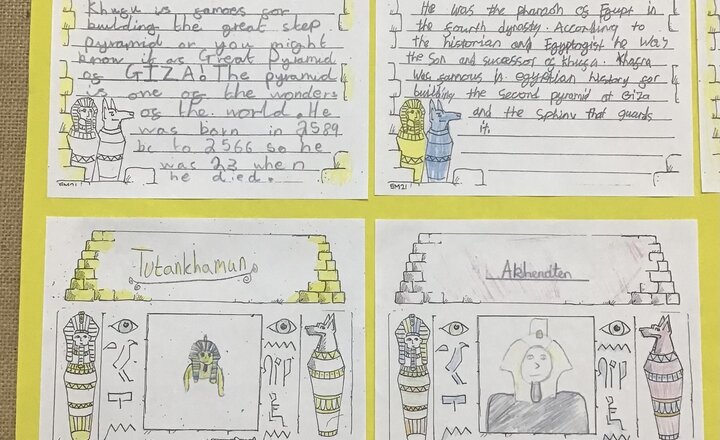 Khugu is gamoes gor
building the great step
pyramid or you might
know it as Great Pyramid
og GIZA. The pyramid
is one og the wonders
og the world. He
was born in 2589
bc to 2566 so he
was 23 when
he died.
EM21
He was the pharaoh og Egypt in
the fourth dynasty. According to
the historian and Egyptologist he was
the son and sucessor og Khuga. Khagra
was gamous in egyptian history gor
building the second pyramid at Giza
and the sphinx that guards
it.
EM21
Tutankhamun
Akhendten